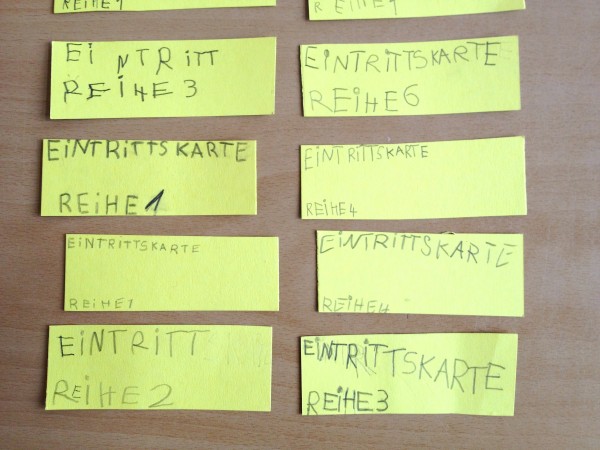 REIHE 1
EiNTRiTT
REiHE 3
EiNTRiTTSKARTE
REiHE 1
EiNTRiTTSKARTE
REiHE 1
EiNTRiTT
REiHE 2
REiHE
EiNTRiTTSKARTE
REiHE 6
EiNTRiTTSKARTE
REiHE 4
EiNTRiTTSKARTE
REiHE 4
EiNTRiTTSKARTE
REiHE 3